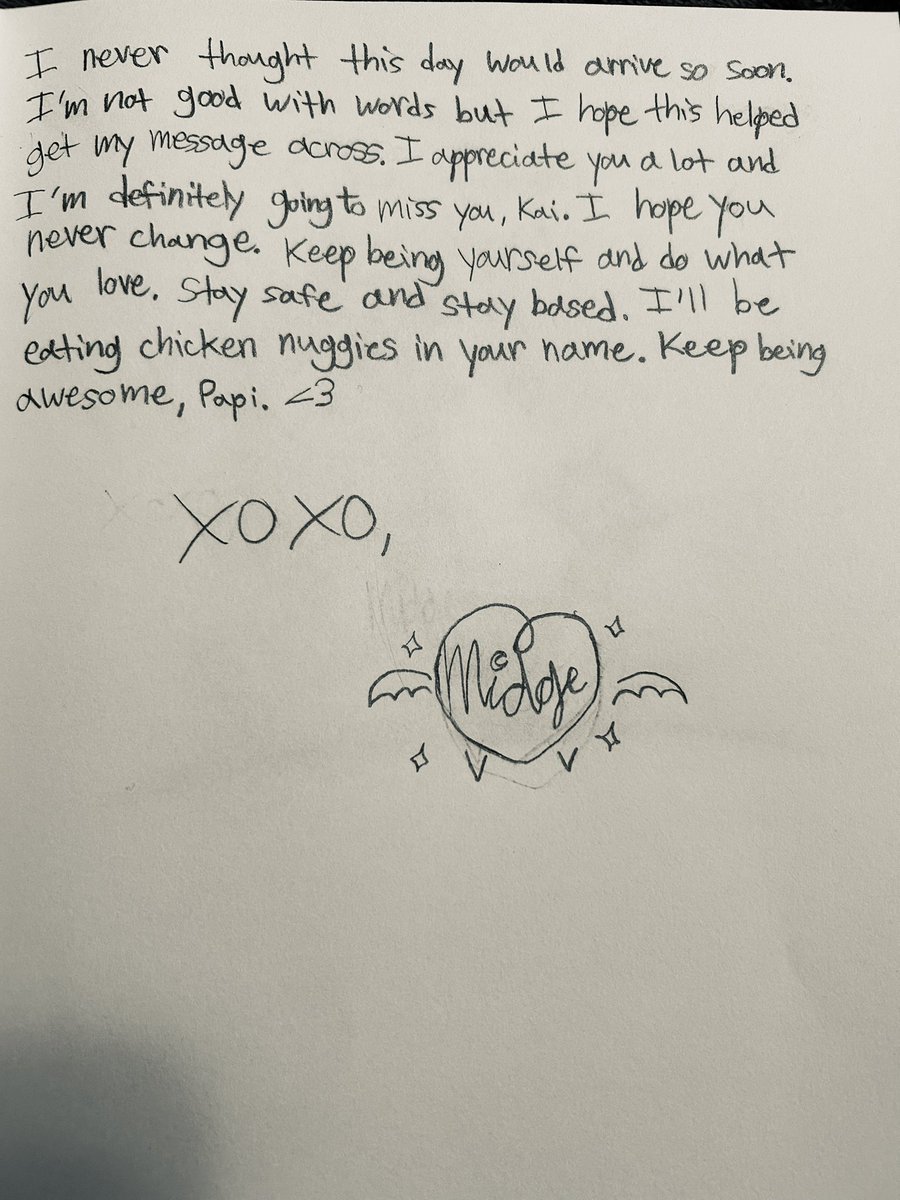 I never thought this day would arrive so soon.
I'm not good with words but I hope this helped
get my message across. I appreciate you a lot and
I'm definitely going to miss you, Kai. I hope you
never change. Keep being yourself and do what
you love. Stay safe and stay based. I'll be
eating chicken nuggies in your name. Keep being
awesome, Papi. <3
XOXO,
Midge